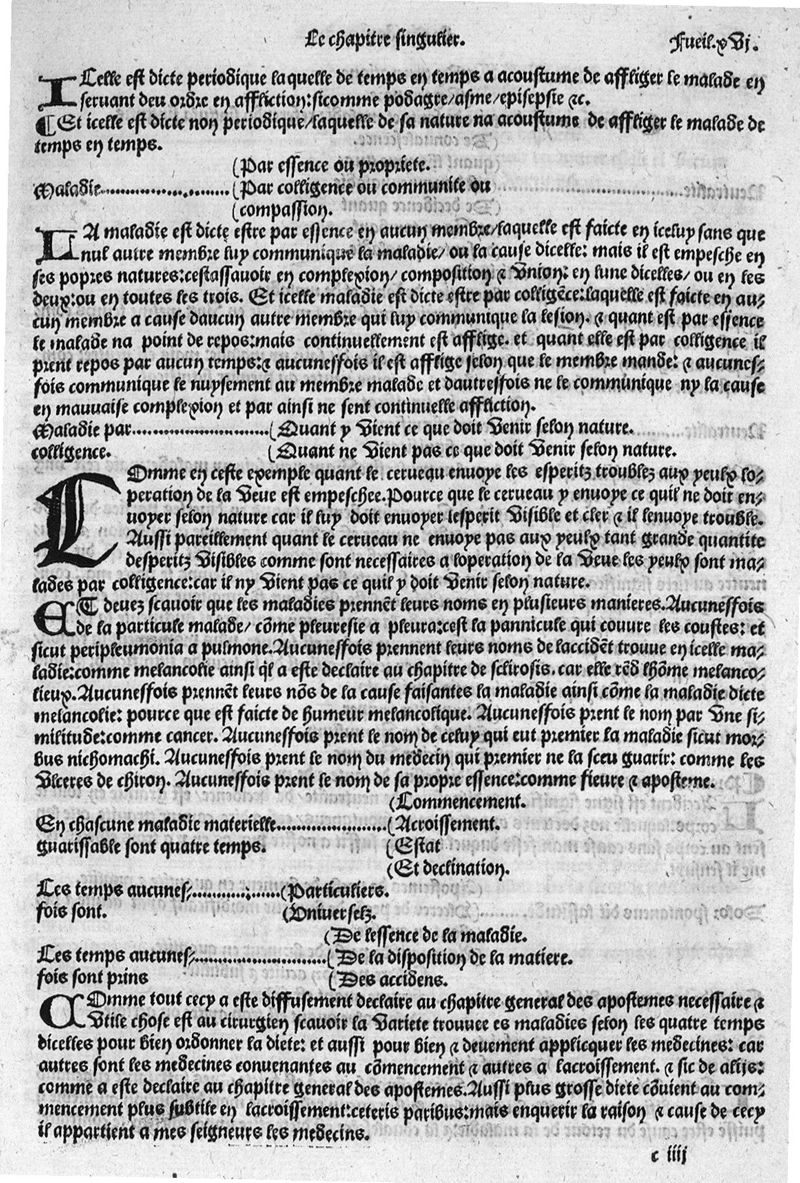 Le chapitre singulier.
Fueil.xvj.
ICelle est dicte periodique laquelle de temps en temps a acoustume de affliger le malade en
seruant deu ordre en affliction:sicomme podagre/asme/episepsie ⁊c.
¶Et icelle est dicte non periodique/laquelle de sa nature na acoustume de affliger le malade de
temps en temps.
(Par essence ou propriete.
Maladie.....................(Par colligence ou communite ou
(compassion.
LA maladie est dicte estre par essence en aucun membre/laquelle est faicte en iceluy sans que
nul autre membre luy communique la maladie/ ou la cause dicelle: mais il est empesche en
ses popres natures:cestassauoir en complexion/ composition ⁊ vnion: en lune dicelles/ ou en les
deux:ou en toutes les trois. Et icelle maladie est dicte estre par colligēce:laquelle est faicte en au⸗
cun membre a cause daucun autre membre qui luy communique la lesion. ⁊ quant est par essence
le malade na point de repos:mais continuellement est afflige. et quant elle est par colligence il
prent repos par aucun temps:⁊ aucunesfois il est afflige selon que le membre mande: ⁊ aucunes⸗
fois communique le nuysement au membre malade et dautresfois ne le communique ny la cause
en mauuaise complexion et par ainsi ne sent continuelle affliction.
Maladie par......................(Quant y vient ce que doit venir selon nature.
colligence. (Quant ne vient pas ce que doit venir selon nature.
COmme en ceste exemple quant le cerueau enuoye les esperitz troublez aux yeulx lo⸗
peration de la veue est empeschee.Pource que le cerueau y enuoye ce quil ne doit en⸗
uoyer selon nature car il luy doit enuoyer lesperit visible et cler ⁊ il lenuoye trouble.
Aussi pareillement quant le cerueau ne enuoye pas aux yeulx tant grande quantite
desperitz visibles comme sont necessaires a loperation de la veue les yeulx sont ma⸗
lades par colligence:car il ny vient pas ce quil y doit venir selon nature.
ET deuez scauoir que les maladies prennēt leurs noms en plusieurs manieres.Aucunesfois
de la particule malade/ cōme pleuresie a pleura:cest la pannicule qui couure les coustes: et
sicut peripleumonia a pulmone.Aucunesfois prennent leurs noms de laccidēt trouue en icelle ma⸗
ladie:comme melancolie ainsi q̄l a este declaire au chapitre de sclirosis. car elle rēd lhōme melanco⸗
lieux.Aucunesfois prennēt leurs nōs de la cause faisantes la maladie ainsi cōme la maladie dicte
melancolie: pource que est faicte de humeur melancolique. Aucunesfois prent le nom par vne si⸗
militude:comme cancer. Aucunesfois prent le nom de celuy qui eut premier la maladie sicut mor⸗
bus nichomachi. Aucunesfois prent le nom du medecin qui premier ne la sceu guarir: comme les
vlceres de chiron. Aucunesfois prent le nom de sa propre essence:comme fieure ⁊ aposteme.
(Commencement.
En chascune maladie materielle.................(Acroissement.
guarissable sont quatre temps. (Estat
(Et declination.
Les temps aucunes⸗..............(Particuliers.
fois sont. (Vniverselz.
(De lessence de la maladie.
Les temps aucunes⸗......................(De la disposition de la matiere.
fois sont prins (Des accidens.
COmme tout cecy a este diffusement declaire au chapitre general des apostemes necessaire ⁊
vtile chose est au cirurgien scauoir la variete trouuee es maladies selon les quatre temps
dicelles pour bien ordonner la diete: et aussi pour bien ⁊ deuement applicquer les medecines: car
autres sont les medecines conuenantes au cōmencement ⁊ autres a lacroissement. ⁊ sic de alijs:
comme a este declaire au chapitre general des apostemes.Aussi plus grosse diete cōuient au com⸗
mencement plus subtile en lacroissement:ceteris paribus:mais enquerir la raison ⁊ cause de cecy
il appartient a mes seigneurs les medecins.
c iiij